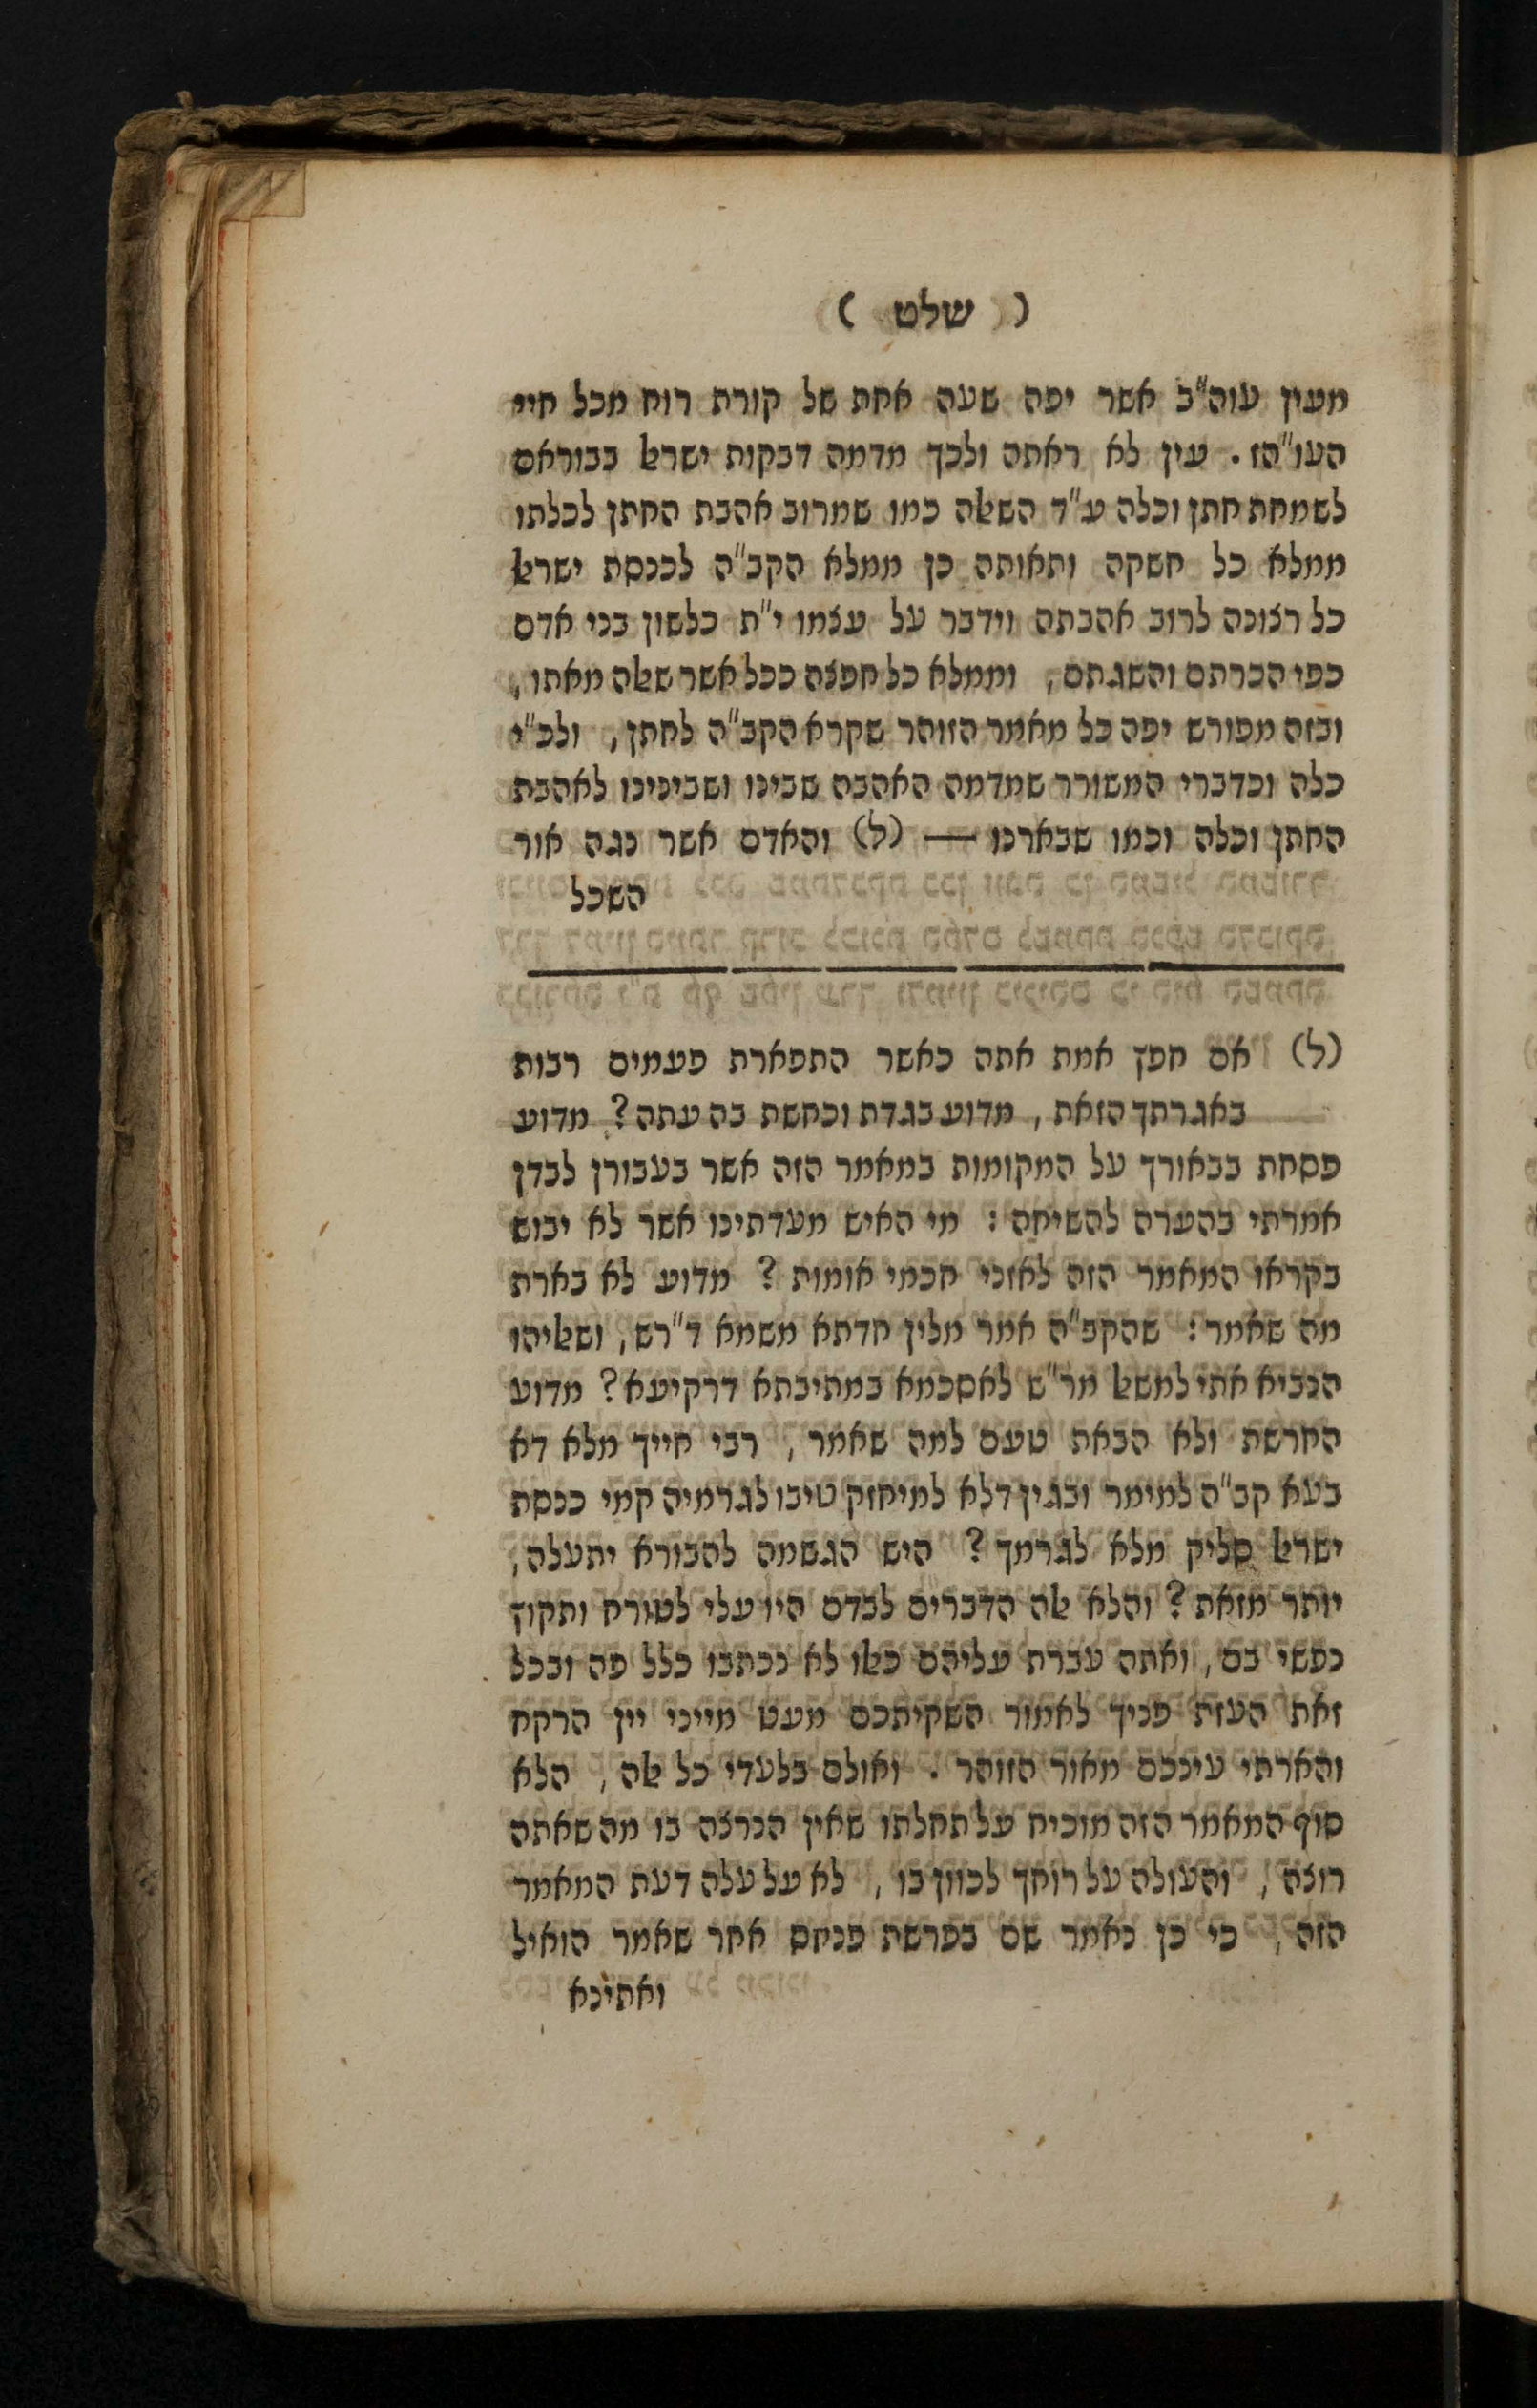 ( שלט )
מעין עוה"ב אשר יפה שעה אחת של קורת רוח מכל חיי
העו"הז . עין לא ראתה ולכך מדמה דבקות ישראל בבוראם
לשמחת חתן וכלה ע"ד השאלה כמו שמרוב אהבת החתן לכלתו
ממלא כל חשקה ותאותה כן ממלא הקב"ה לכנסת ישראל
כל רצונה לרוב אהבתה וידבר על עצמו י"ת כלשון בני אדם
כפי הכרתם והשגתם , וממלא כל חפצה ככל אשר שאלה מאתו ,
ובזה מפורש יפה כל מאמר הזוהר שקרא הקב"ה לחתן , ולכ"י
כלה וכדברי המשורר שמדמה האהבה שבינו ושבינינו לאהבת
החתן וכלה וכמו שבארנו — (ל) והאדם אשר נגה אור
השכל
(ל) אם חפץ אמת אתה כאשר התפארת פעמים רבות
באגרתך הזאת , מדוע בגדת וכחשת בה עתה ? מדוע
פסחת בבאורך על המקומות במאמר הזה אשר בעבורן לבדן
אמרתי בהערה להשיחה : מי האיש מעדתינו אשר לא יבוש
בקראו המאמר הזה לאזני חכמי אומות ? מדוע לא בארת
מה שאמר : שהקפ"ה אמר מלין חדתא משמא ד"רש , ושאליהו
הנביא אתי למשאל מר"ש לאסכמא במתיבתא דרקיעא ? מדוע
החרשת ולא הבאת טעם למה שאמר , רבי חייך מלא דא
בעא קב"ה למימר ובגין דלא למיחזק טיבו לגרמיה קמי כנסת
ישראל סליק מלא לגרמך ? היש הגשמה להבורא יתעלה ,
יותר מזאת ? והלא אלה הדברים לבדם היו עלי לטורח ותקוץ
נפשי בם , ואתה עברת עליהם כאלו לא נכתבו כלל פה ובכל
זאת העזת פניך לאמור השקיתכם מעט מייני יין הרקח
והארתי עינכם מאור הזוהר . ואולם בלעדי כל אלה , הלא
סוף המאמר הזה מוכיח על תחלתו שאין הנרצה בו מה שאתה
רוצה , והעולה על רוחך לכוון בו , לא על עלה דעת המאמר
הזה , כי כן נאמר שם בפרשת פנחס אחר שאמר הואיל
ואתינא